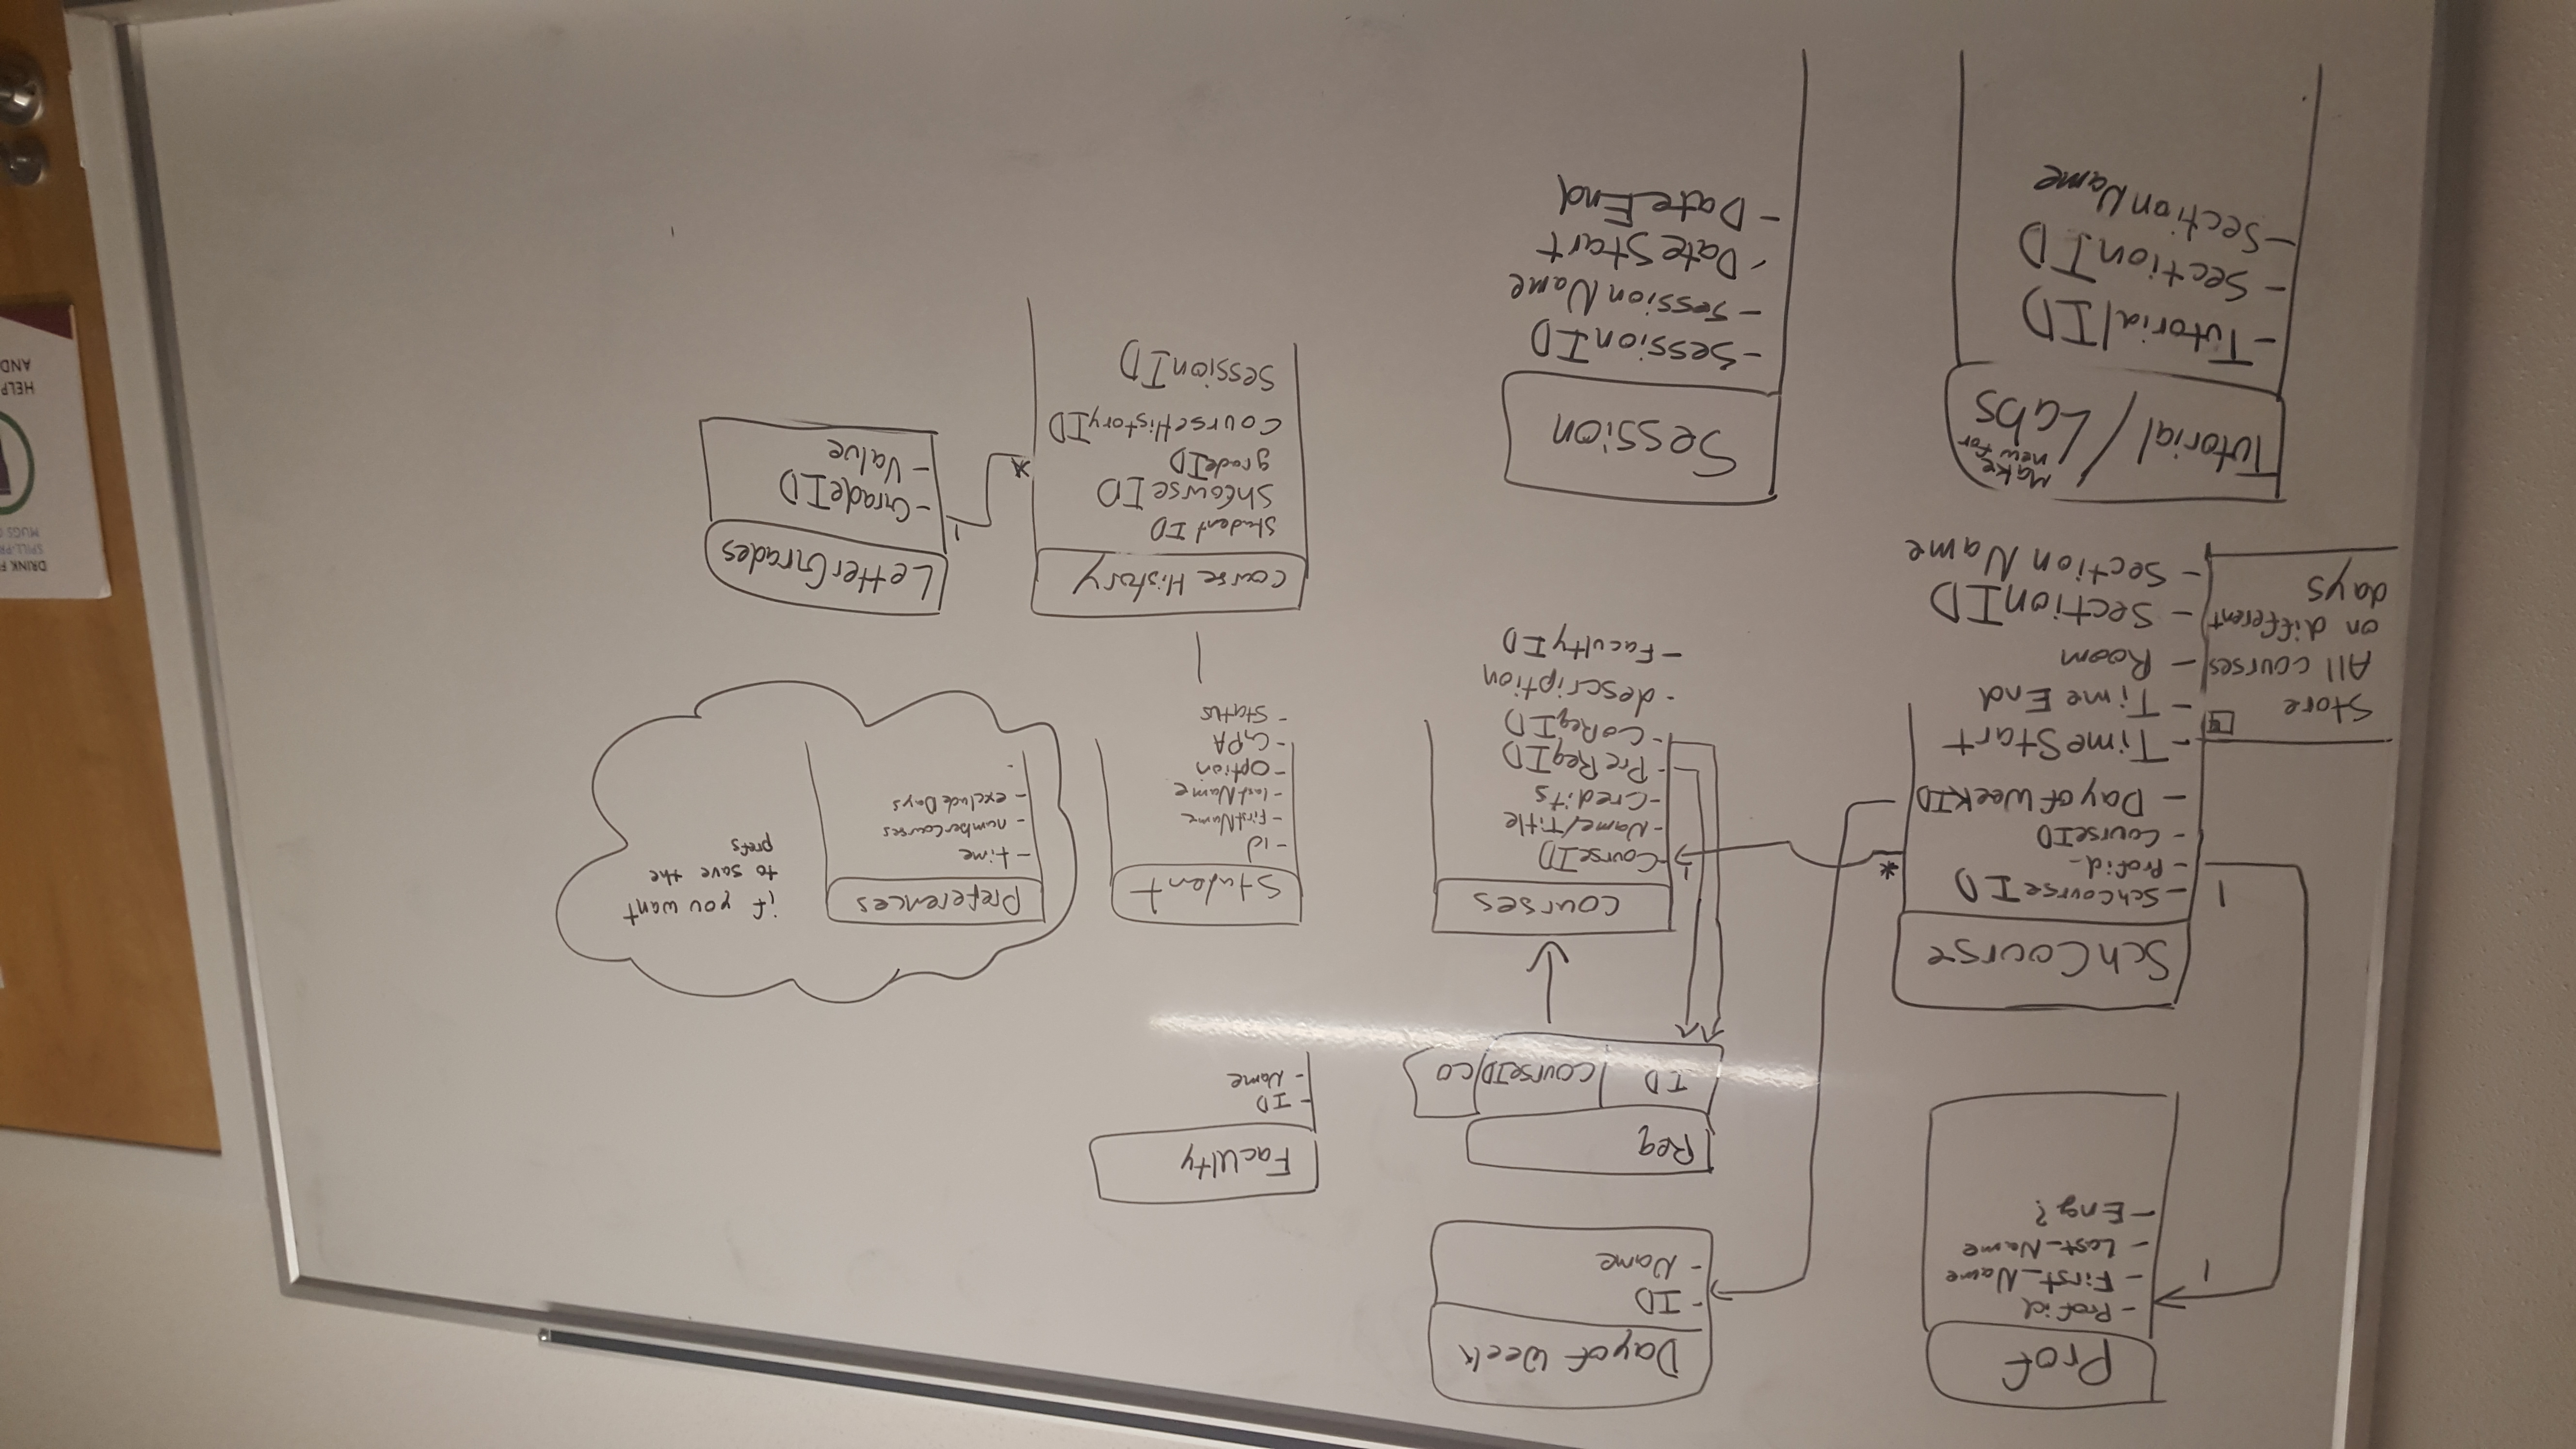 Prof
- Profid
- First_Name
- Last_Name
- Eng?
1
Day of Week
- ID
- Name
Req
ID
courseID
CO
Faculty
- ID
- Name
SchCourse
1
- SchCourseID
- Profid
- CourseID
- DayofWeekID
- TimeStart
- TimeEnd
- Room
- SectionID
- Section Name
*
1
Store
All courses
on different
days
courses
- CourseID
- Name/Title
- Credits
- PreReqID
- CoReqID
- description
- FacultyID
Student
- id
- firstName
- lastName
- Option
- GPA
- Status
Preferences
- time
- numberCourses
- excludeDays
-
if you want
to save the
prefs
Course History
Student ID
ShCourseID
gradeID
CourseHistoryID
SessionID
*
1
LetterGrades
- GradeID
- Value
Tutorial / Labs
Make
new for
- TutorialID
- SectionID
- SectionName
Session
- SessionID
- SessionName
- DateStart
- DateEnd
DRINK
SPILL-
MUGS
HELP
AND